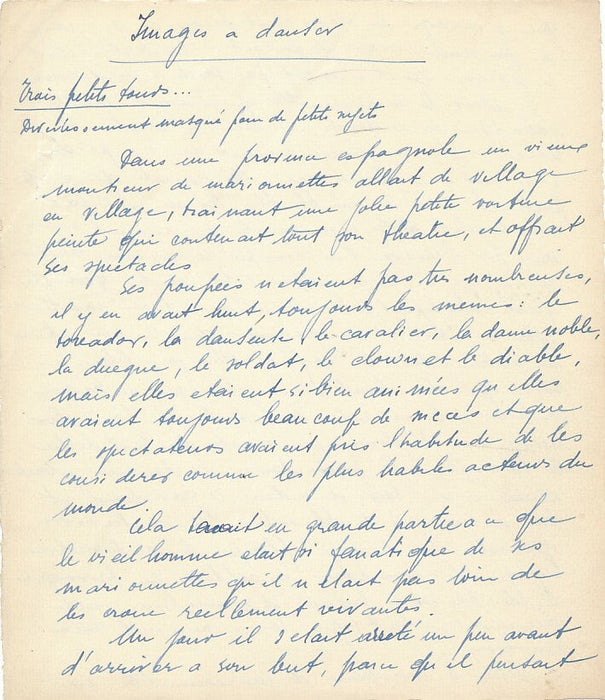 Images a danser
Trois petits tours...
Divertissement masqué pour de petits sujets
Dans une province espagnole un vieux
montreur de marionnettes allait de village
en village, trainant une jolie petite voiture
peinte qui contenait tout son theatre, et offrait
ses spectacles
Ses poupées n etaient pas tres nombreuses,
il y en avait huit, toujours les memes : le
toreador, la danseuse, le cavalier, la dame noble,
la duegne, le soldat, le clown et le diable,
mais elles etaient si bien animées qu elles
avaient toujours beaucoup de succes et que
les spectateurs avaient pris l habitude de les
considerer comme les plus habiles acteurs du
monde.
Cela tenait en grande partie a ce que
le vieil homme etait si fanatique de ses
marionnettes qu il n etait pas loin de
les croire reellement vivantes.
Un jour il s etait arreté un peu avant
d'arriver a son but, parce qu il pensait